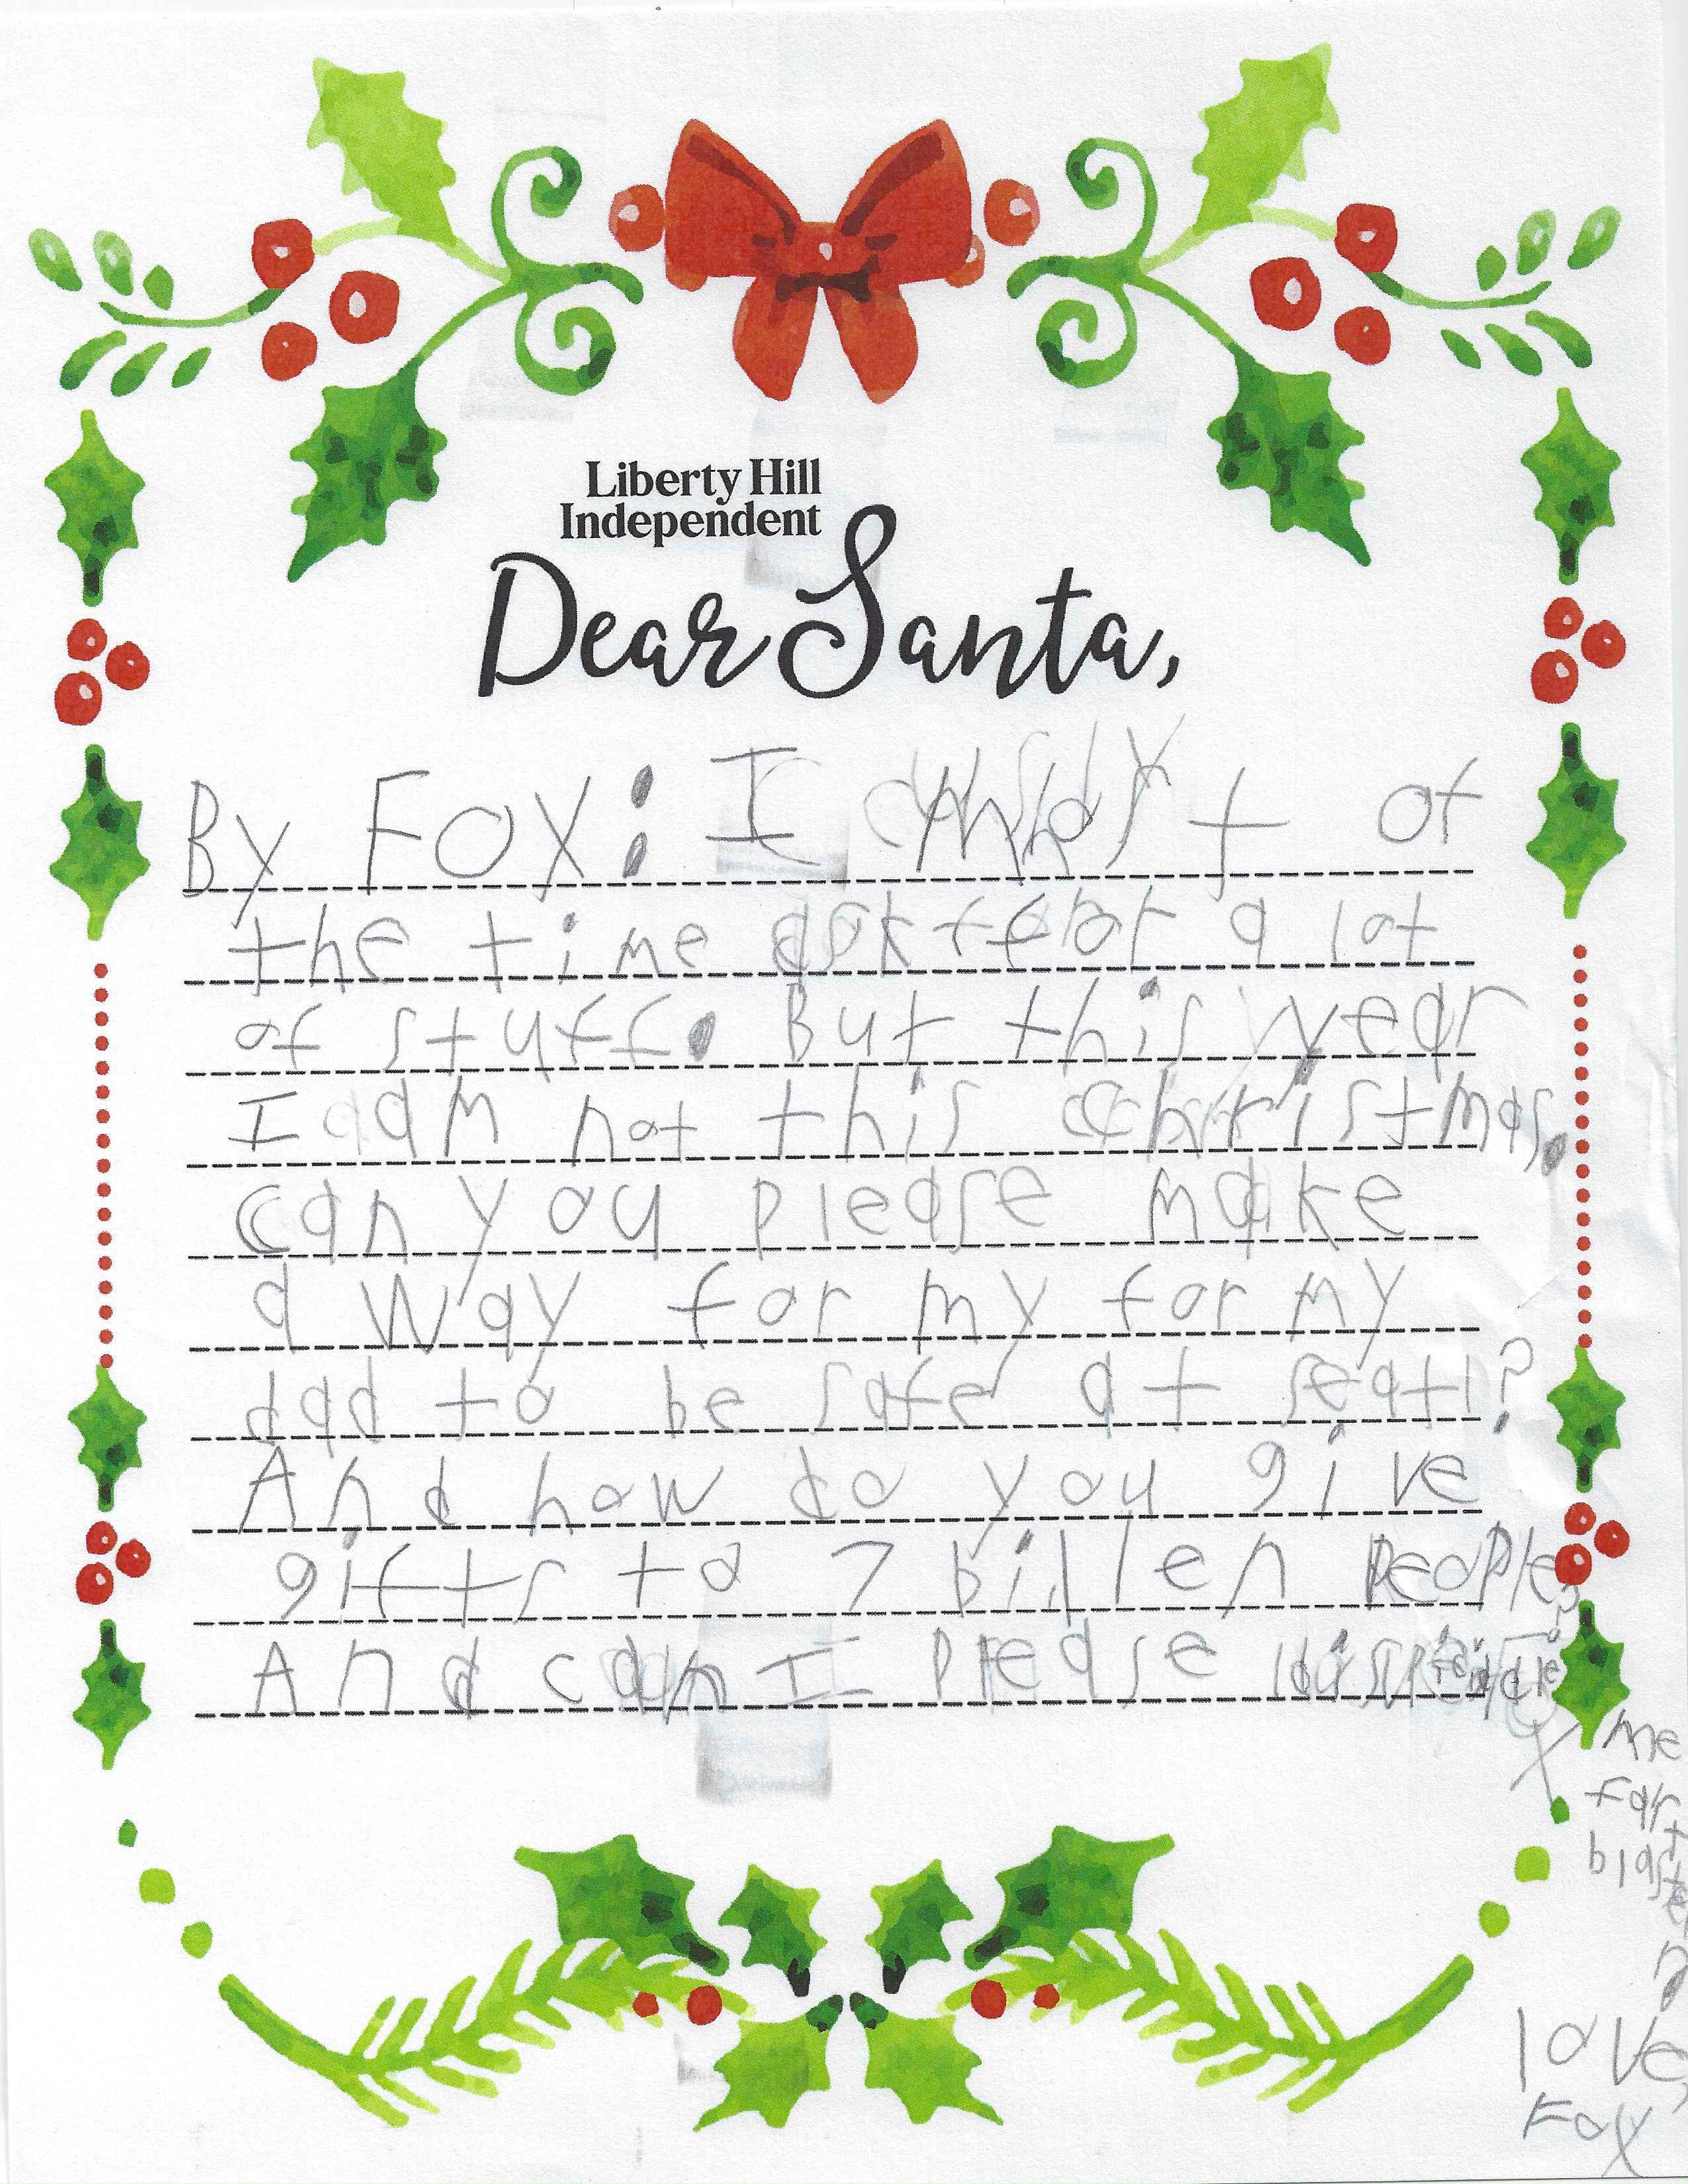 Liberty Hill
Independent
Dear Santa,
By Fox: I of
the time ask for a lot
of stuff. But this year
I am not this christmas.
can you please make
a way for my for my
dad to be safe at seatl?
And how do you give
gifts to 7 billen people?
And can I please
me
fart
blaster
?
love,
Fox